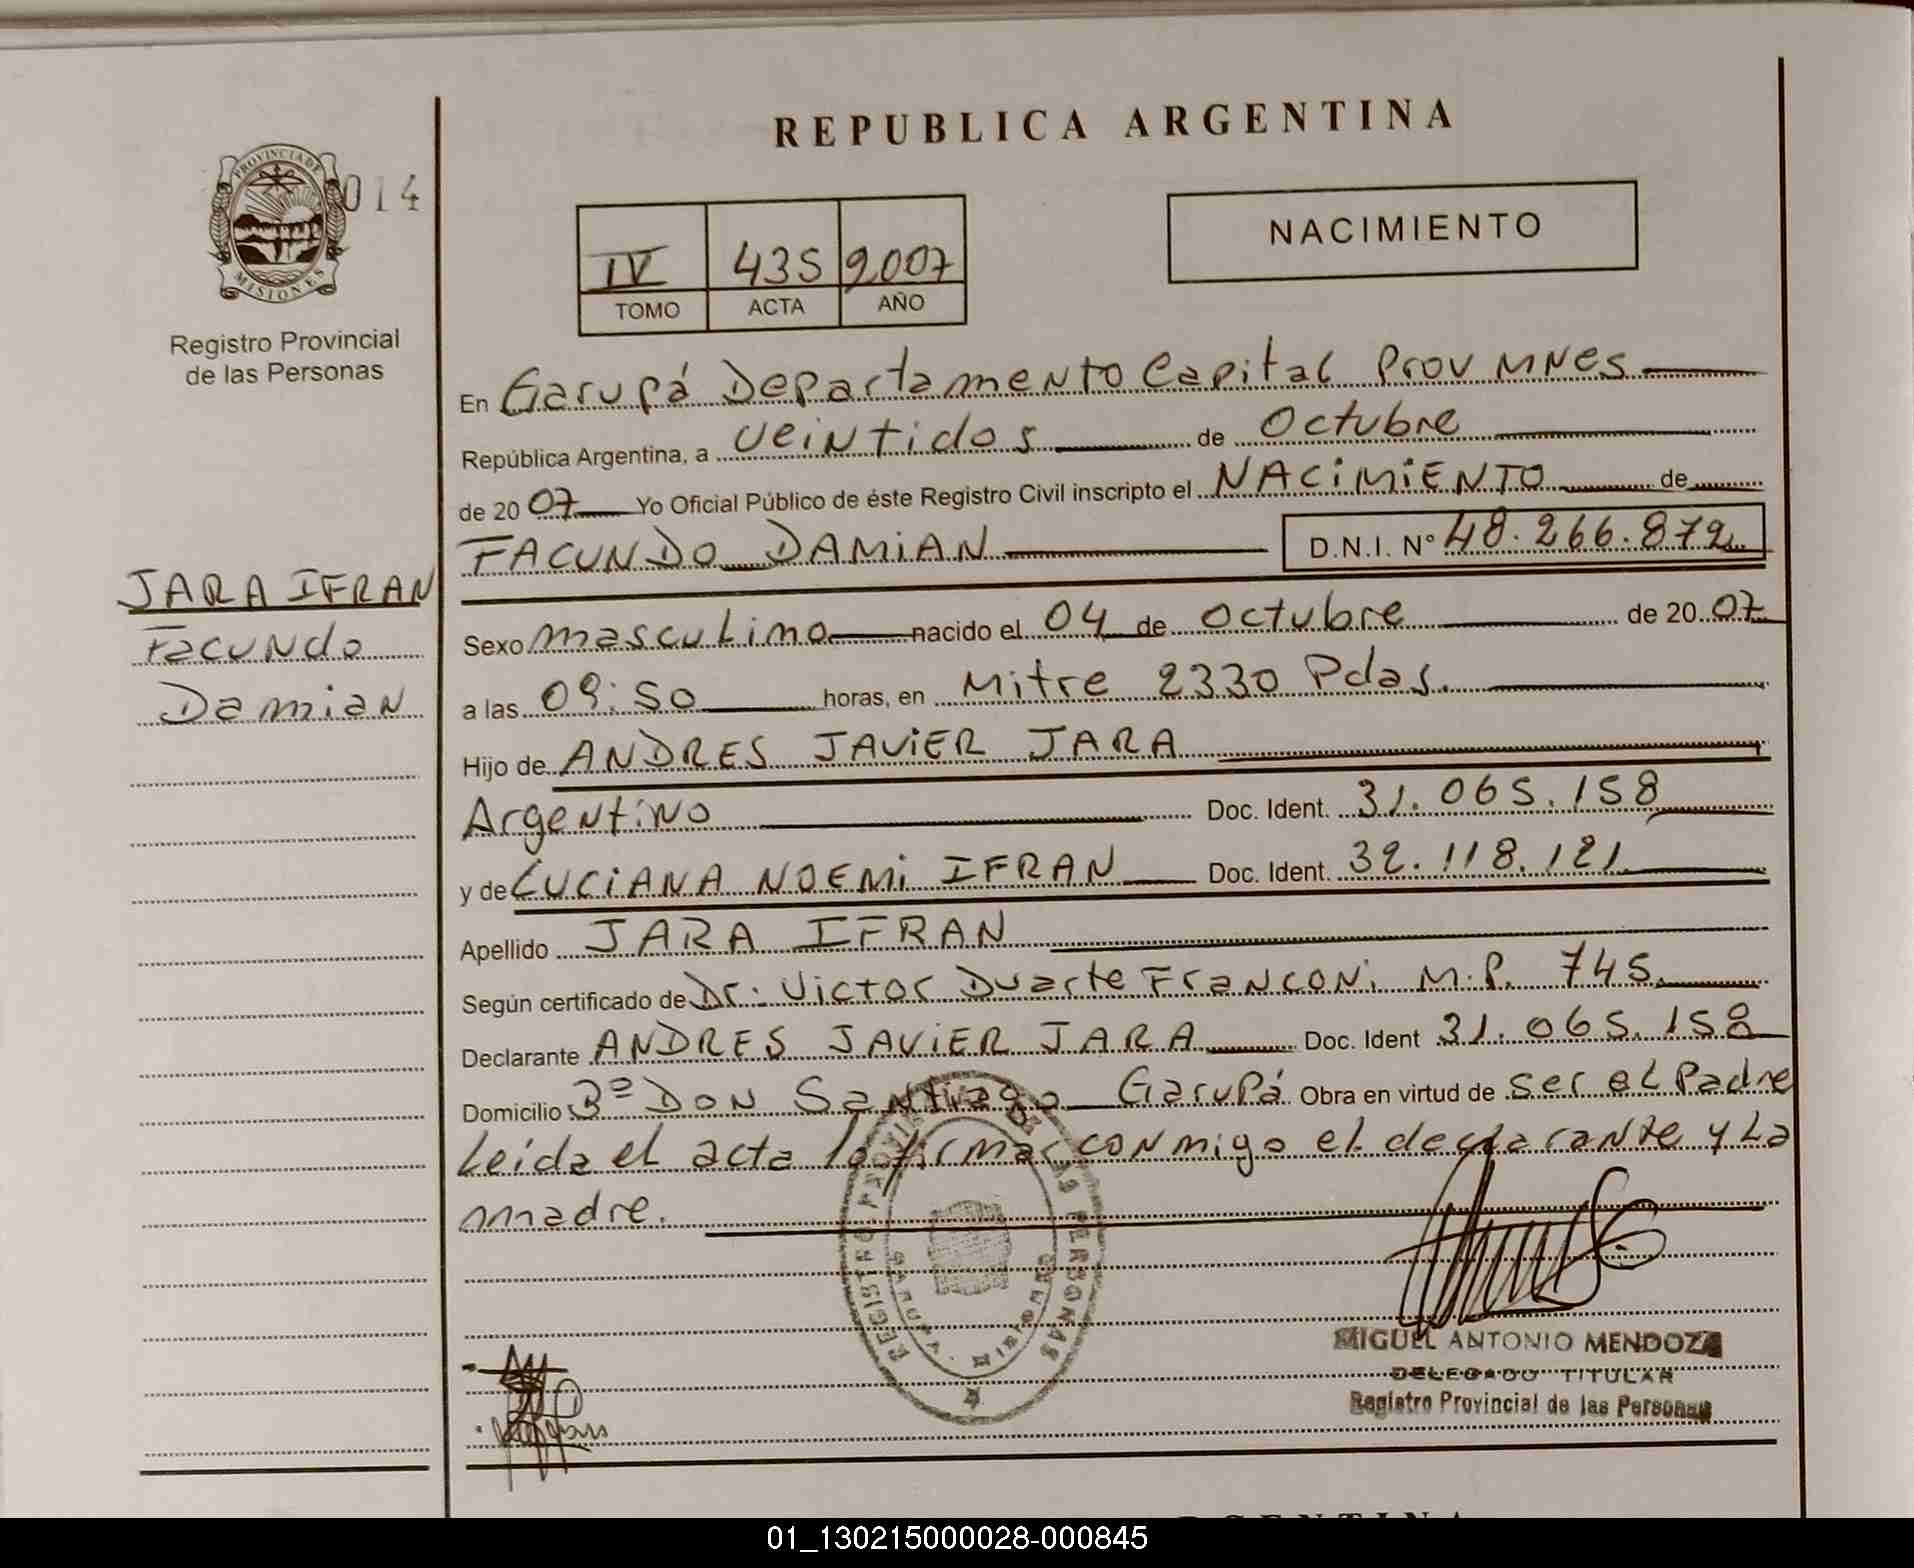 REPUBLICA ARGENTINA
PROVINCIA DE
MISIONES
014
Registro Provincial
de las Personas
IV 435 2007
TOMO ACTA AÑO
NACIMIENTO
En Garupá Departamento Capital Prov MNES
República Argentina, a veintidos de Octubre
de 2007 Yo Oficial Público de éste Registro Civil inscripto el NACIMIENTO de
FACUNDO DAMIAN D.N.I. N° 48.266.872
JARA IFRAN
Facundo
Damian
Sexo masculino nacido el 04 de Octubre de 2007
a las 09:50 horas, en Mitre 2330 Pdas.
Hijo de ANDRES JAVIER JARA
Argentino Doc. Ident. 31.065.158
y de LUCIANA NOEMI IFRAN Doc. Ident. 32.118.121
Apellido JARA IFRAN
Según certificado de Dr: Victor Duarte Franconi M.P. 745
Declarante ANDRES JAVIER JARA Doc. Ident 31.065.158
Domicilio 3ª DON Santiago Garupá Obra en virtud de ser el Padre
Leida el acta la firmar conmigo el declarante y La
madre.
REGISTRO PROVINCIAL DE LAS PERSONAS
GARUPA MISIONES
MIGUEL ANTONIO MENDOZA
DELEGADO TITULAR
Registro Provincial de las Personas
01_130215000028-000845